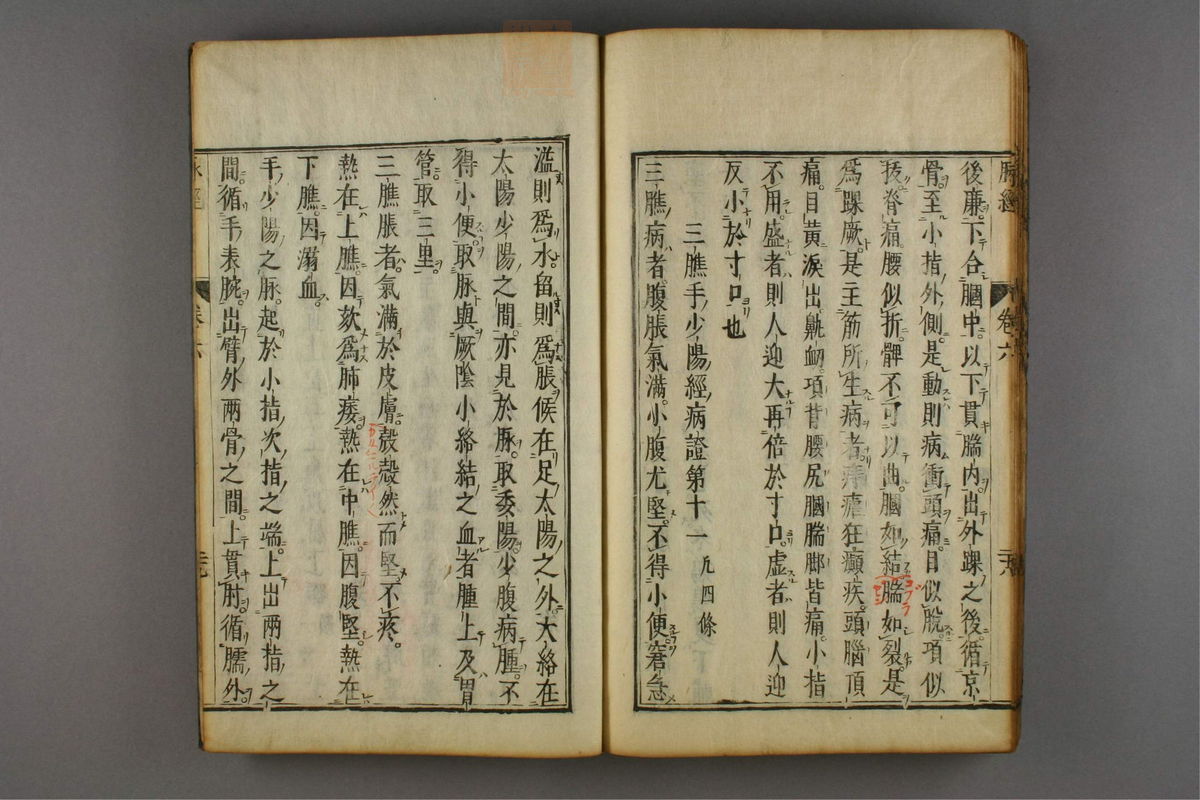 脉經 卷六
後廉下合膕中以下貫腨内出外踝之後循京
骨至小指外側是動則病衝頭痛目似脫項似
拔脊痛腰似折髀不可以曲膕如結腨如裂是
爲踝厥是主筋所生病者痔瘧狂癲疾頭腦頂
痛目黃淚出鼽衄項背腰尻膕腨脚皆痛小指
不用盛者則人迎大再倍於寸口虛者則人迎
反小於寸口也
三膲手少陽經病證第十一 凡四條
三膲病者腹脹氣滿小腹尤堅不得小便窘急
溢則爲水留則爲脹候在足太陽之外大絡在
太陽少陽之間亦見於脉取委陽少腹病腫不
得小便取脉與厥陰小絡結之血者腫上及胃
管取三里
三膲脹者氣滿於皮膚殼殼然而堅不疼
熱在上膲因欬爲肺痿熱在中膲因腹堅熱在
下膲因溺血
手少陽之脉起於小指次指之端上出兩指之
間循手表腕出臂外兩骨之間上貫肘循臑外